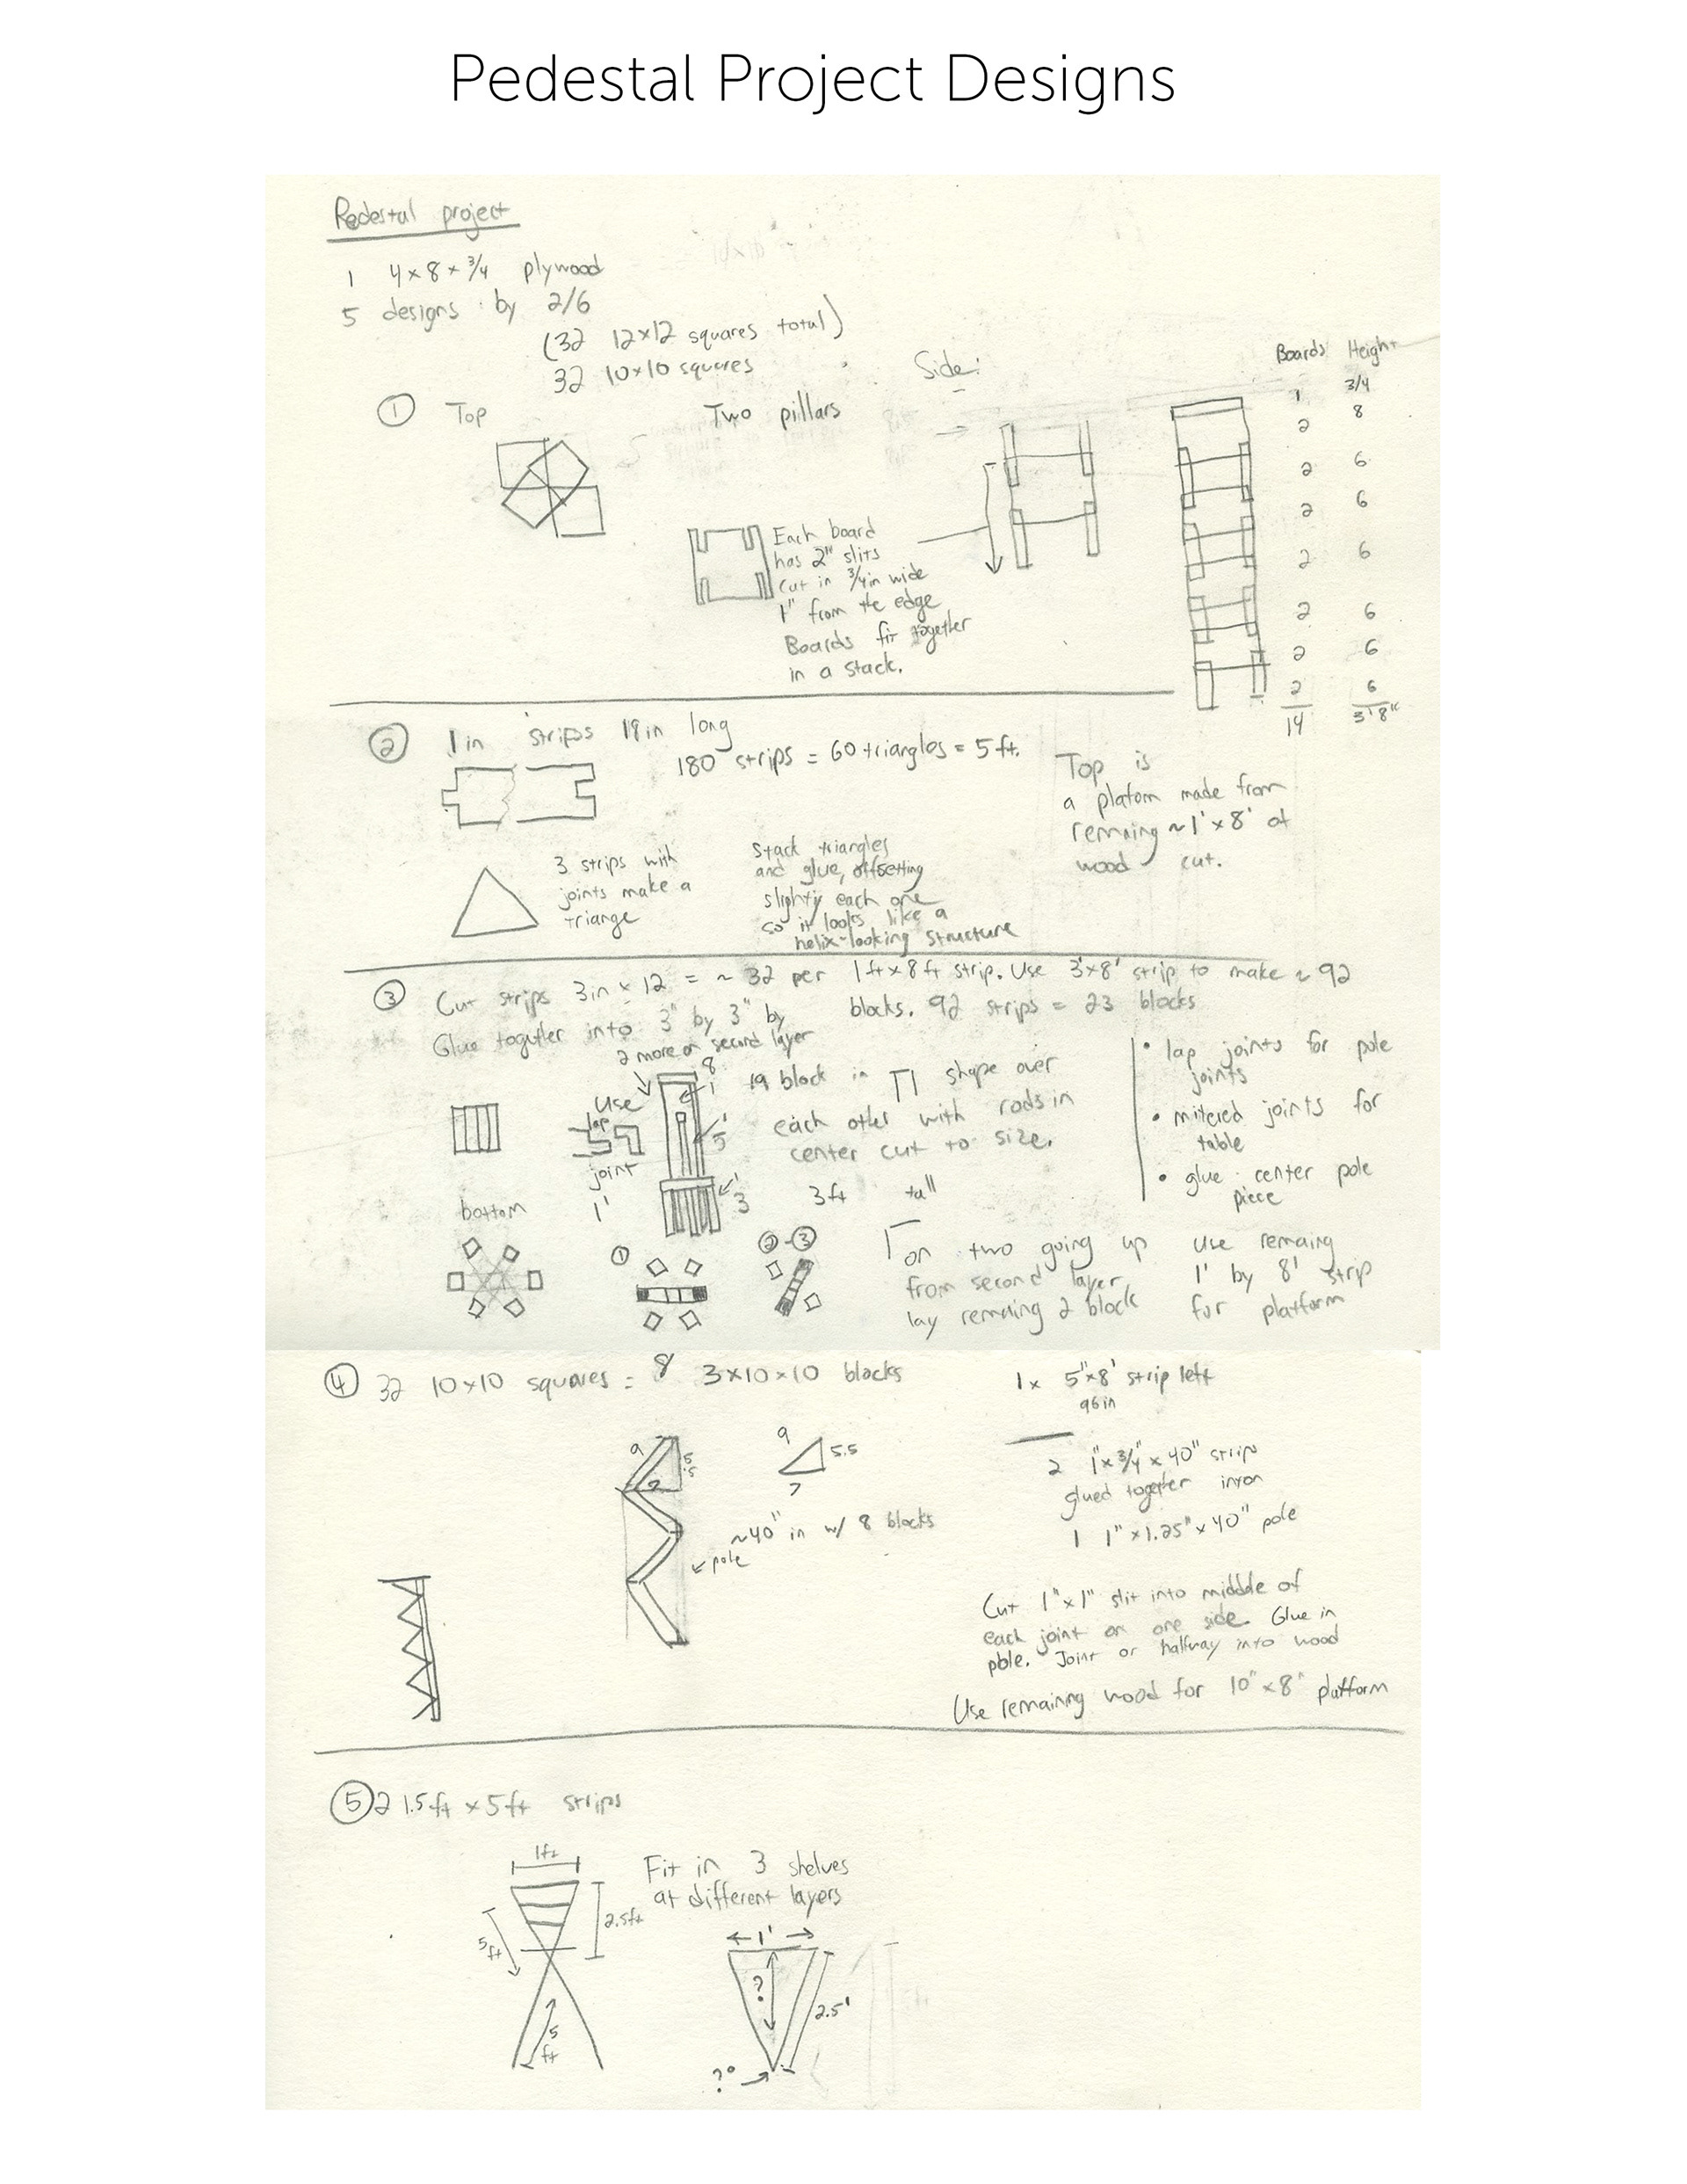 Pedestal Project Designs
Pedestal project
1 4 x 8 x 3/4 plywood
5 designs by 2/6
(32 12x12 squares total)
32 10x10 squares
① Top
Two pillars
Side:
Boards Height
1 3/4
2 8
2 6
2 6
2 6
2 6
2 6
2 6
14 3'8"
Each board
has 2" slits
cut in 3/4in wide
1" from the edge
Boards fit together
in a stack.
② 1in strips 19in long
180 strips = 60 triangles = 5ft.
3 strips with
joints make a
triange
Stack triangles
and glue, offsetting
slightly each one
so it looks like a
helix-looking structure
Top is
a platom made from
remaing ~1'x8' of
wood cut.
③ Cut strips 3in x 12 = ~32 per 1ft x 8ft strip. Use 3'x8' strip to make ~92
Glue together into 3" by 3" by blocks. 92 strips = 23 blocks
2 more on second layer
Use
lap
joint
8
1
5'
1'
3
19 block in TT shape over
each other with rods in
center cut to size.
3ft tall
• lap joints for pole
joints
• mitered joints for
table
• glue center pole
piece
bottom 1'
①
②-③
on two going up
from second layer,
lay remaing 2 block
Use remaing
1' by 8' strip
for platform
④ 32 10x10 squares = 8 3x10x10 blocks
9
5.5
7
9
5.5
7
~40" in w/ 8 blocks
← pole
1x 5"x8' strip left
96in
2 1"x3/4"x40" strips
glued together into
1 1"x1.25"x40" pole
Cut 1"x1" slit into middle of
each joint on one side. Glue in
pole. Joint or halfway into wood
Use remaining wood for 10"x8" platform
⑤ 2 1.5ft x 5ft strips
1ft
2.5ft
5
ft
5
ft
Fit in 3 shelves
at different layers
← 1' →
?
2.5'
?°